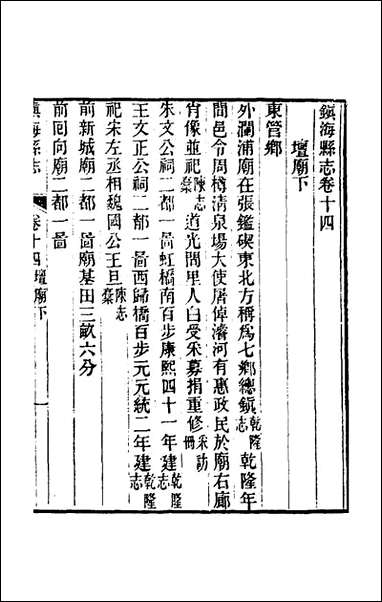 鎮海縣志卷十四
壇廟下
東管鄉
外瀾浦廟在張鑑碶東北方稱爲七鄉總鎭乾隆志乾隆年
間邑令周樽清泉場大使屠倬濬河有惠政民於廟右廊
肖像並祀陳志稾道光間里人白受采募捐重修采訪冊
朱文公祠二都一啚虹橋南百步康熙四十一年建乾隆志
王文正公祠二都一啚西歸橋百步元元統二年建乾隆志
祀宋左丞相魏國公王旦陳志稾
前新城廟二都一啚廟基田三畝六分
前囘向廟二都一啚
鎮海縣志
卷十四壇廟下
一